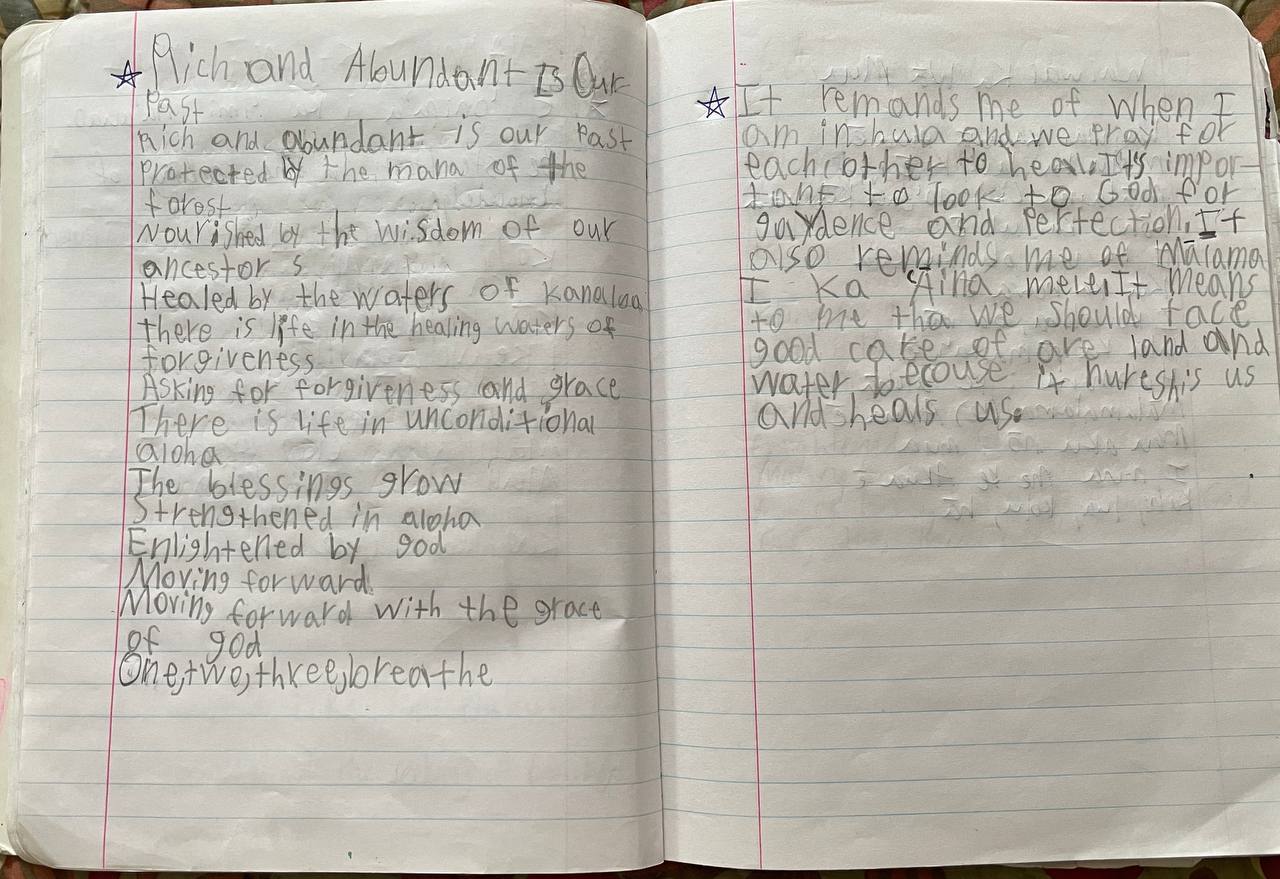 Rich and Abundant Is Our
Past
Rich and abundant is our Past
Protected by the mana of the
forest
Nourished by the wisdom of our
ancestors
Healed by the waters of Kanaloa
there is life in the healing waters of
forgiveness
Asking for forgiveness and grace
There is life in unconditional
aloha
The blessings grow
Strengthened in aloha
Enlightened by god
Moving forward
Moving forward with the grace
of god
One,two,three,breathe
It remands me of when I
am in hula and we pray for
each other to heal. It's impor-
tant to look to God for
gaydence and Perfection. It
also reminds me of Mālama
I Ka ʻĀina mele. It means
to me tha we should tace
good care of are land and
water becouse it nureshis us
and heals us.